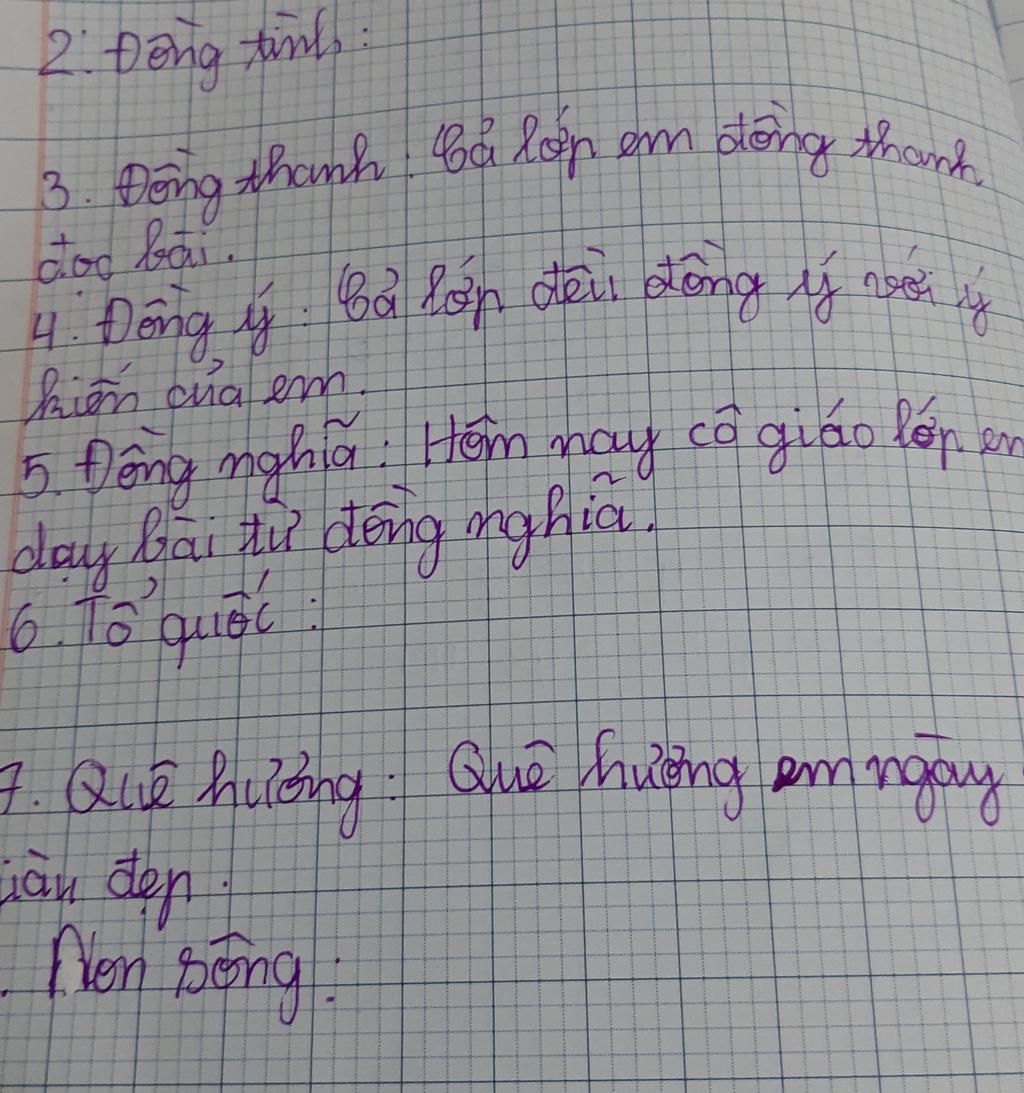 2. Đồng tình:
3. Đồng thanh: Cả lớp em đồng thanh
đọc bài.
4. Đồng ý: Cả lớp đều đồng ý với ý
kiến của em.
5. Đồng nghĩa: Hôm nay cô giáo lớp em
dạy bài từ đồng nghĩa.
6. Tổ quốc:
7. Quê hương: Quê hương em ngày
giàu đẹp.
. Non sông: